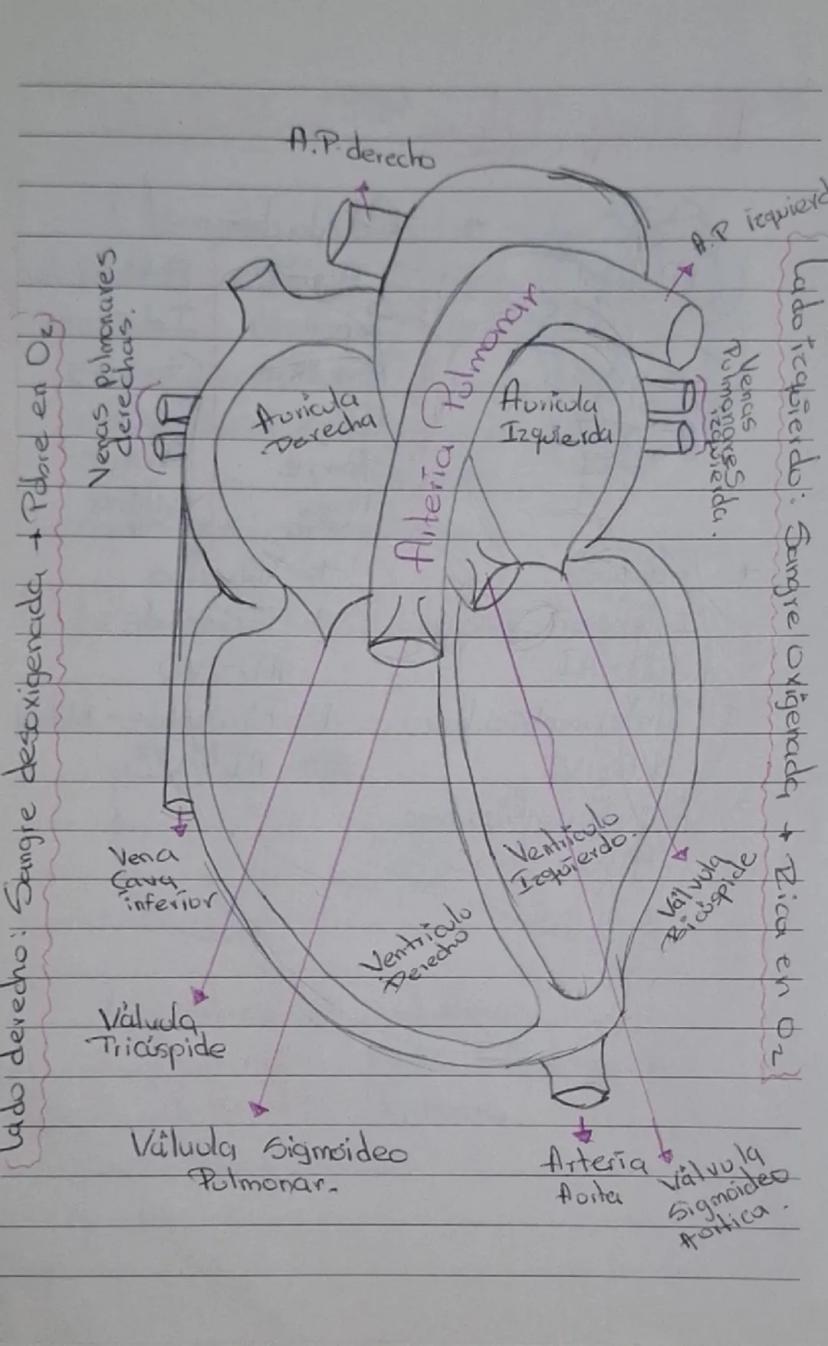 A.P. derecho
A.P izquierd
Venas pulmonares
derechas.
Aurícula
Derecha
Arteria Pulmonar
Aurícula
Izquierda
Venas
Pulmonares
izquierda.
Lado izquierdo: Sangre Oxigenada + Rica en O2
Lado derecho: Sangre desoxigenada + Pobre en O2
Vena
Cava
inferior
Ventrículo
Derecho
Ventrículo
Izquierdo.
Válvula
Bicúspide
Válvula
Tricúspide
Válvula Sigmoideo
Pulmonar.
Arteria
Aorta
Válvula
Sigmoideo
Aórtica.